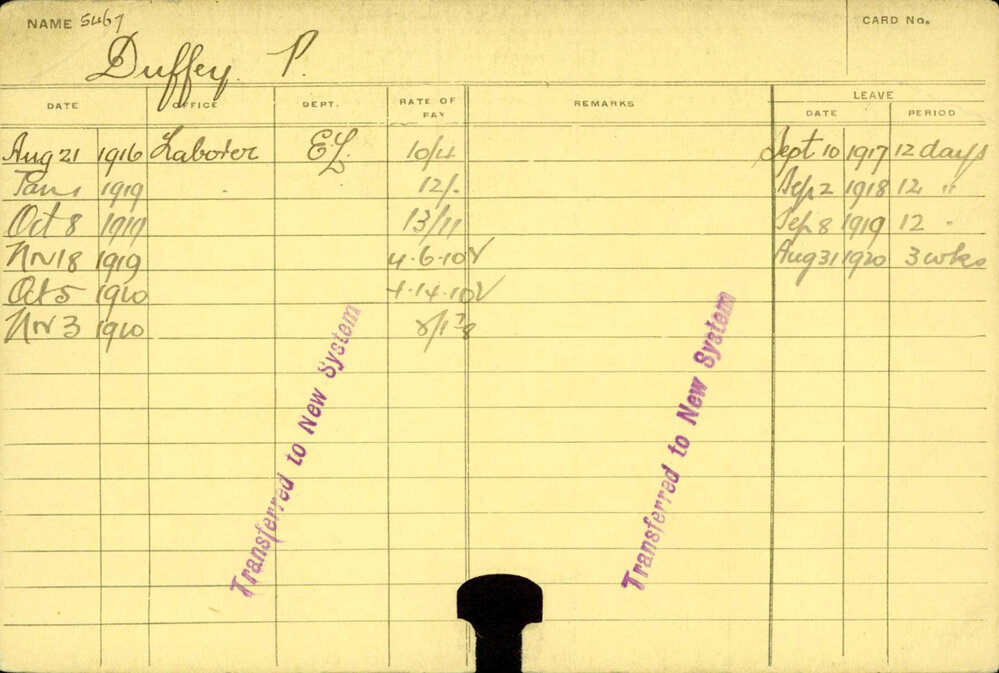 NAME 5467
CARD No.
Duffey P.
DATE OFFICE DEPT. RATE OF PAY REMARKS LEAVE
DATE PERIOD
Aug 21 1916 Laborer EL 10/4 Sept 10 1917 12 days
Jan 1 1919 12/- Sep 2 1918 12 "
Oct 8 1919 13/11 Sep 8 1919 12 "
Nv 18 1919 4.6.10 Aug 31 1920 3 wks
Oct 5 1920 4.14.10
Nv 3 1920
Transferred to New System
Transferred to New System